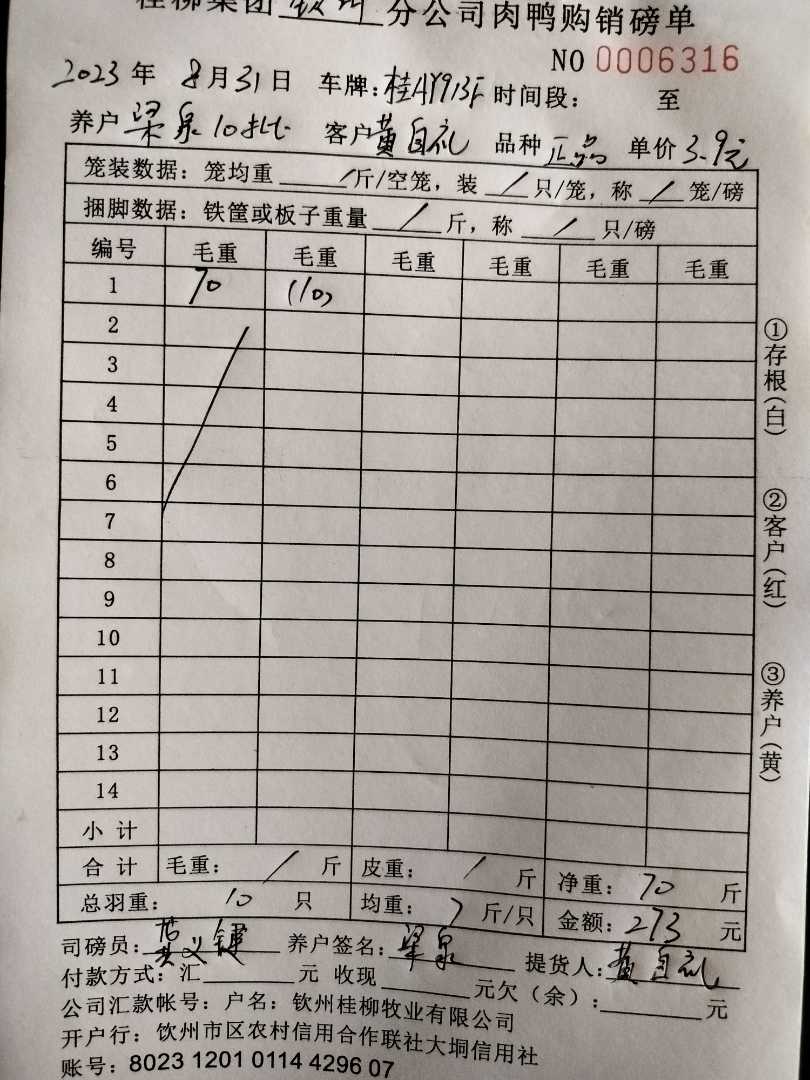 桂柳集团 钦州 分公司肉鸭购销磅单
NO 0006316
2023年 8月31日 车牌:桂AY913F 时间段: 至
养户 梁泉10批 客户 黄自礼 品种 正品 单价 3.9元
笼装数据:笼均重 / 斤/空笼,装 / 只/笼,称 / 笼/磅
捆脚数据:铁筐或板子重量 / 斤,称 / 只/磅
编号 毛重 毛重 毛重 毛重 毛重 毛重
1 70 (10)
2
3
4
5
6
7
8
9
10
11
12
13
14
小计
合计 毛重: / 斤 皮重: / 斤 净重: 70 斤
总羽重: 10 只 均重: 7 斤/只 金额: 273 元
司磅员: 黄义键 养户签名: 梁泉 提货人: 黄自礼
付款方式:汇 元 收现 元欠(余): 元
公司汇款帐号:户名:钦州桂柳牧业有限公司
开户行:钦州市区农村信用合作联社大垌信用社
账号:8023 1201 0114 4296 07
①存根(白)
②客户(红)
③养户(黄)